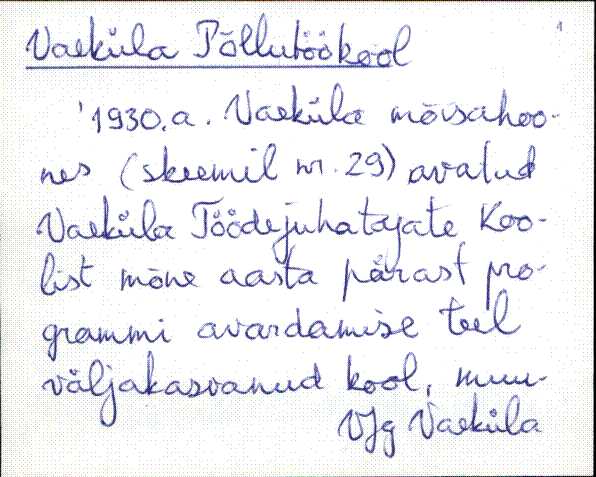 1
Vaeküla Põllutöökool
1930.a. Vaeküla mõisahoo-
nes (skeemil nr. 29) avatud
Vaeküla Töödejuhatajate Koo-
list mõne aasta pärast pro-
grammi avardamise teel
väljakasvanud kool, muu-
VJg Vaeküla